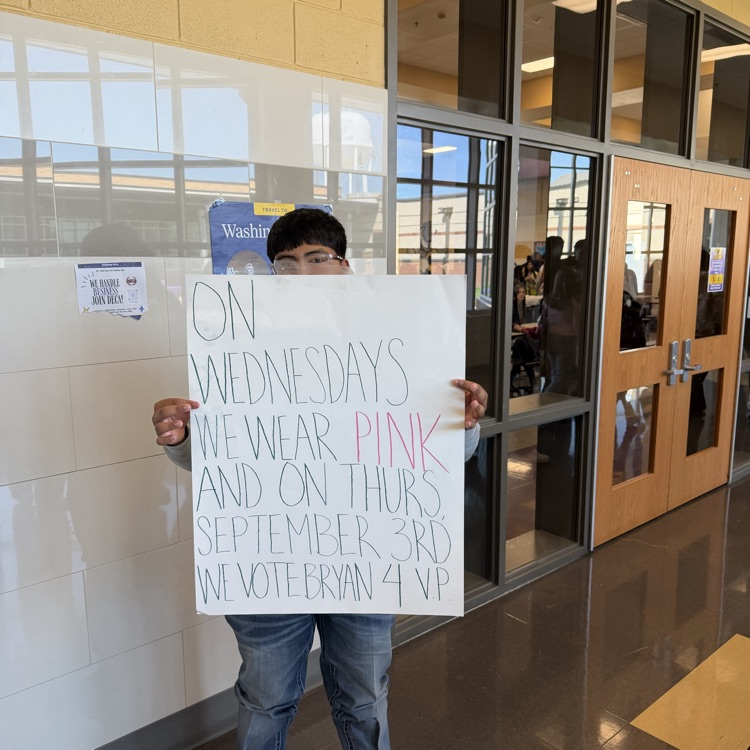 TRAVEL TO
Washin
WE HANDLE
BUSINESS
JOIN DECA!
ON
WEDNESDAYS
WE WEAR PINK
AND ON THURS,
SEPTEMBER 3RD
WE VOTE BRYAN 4 V.P.